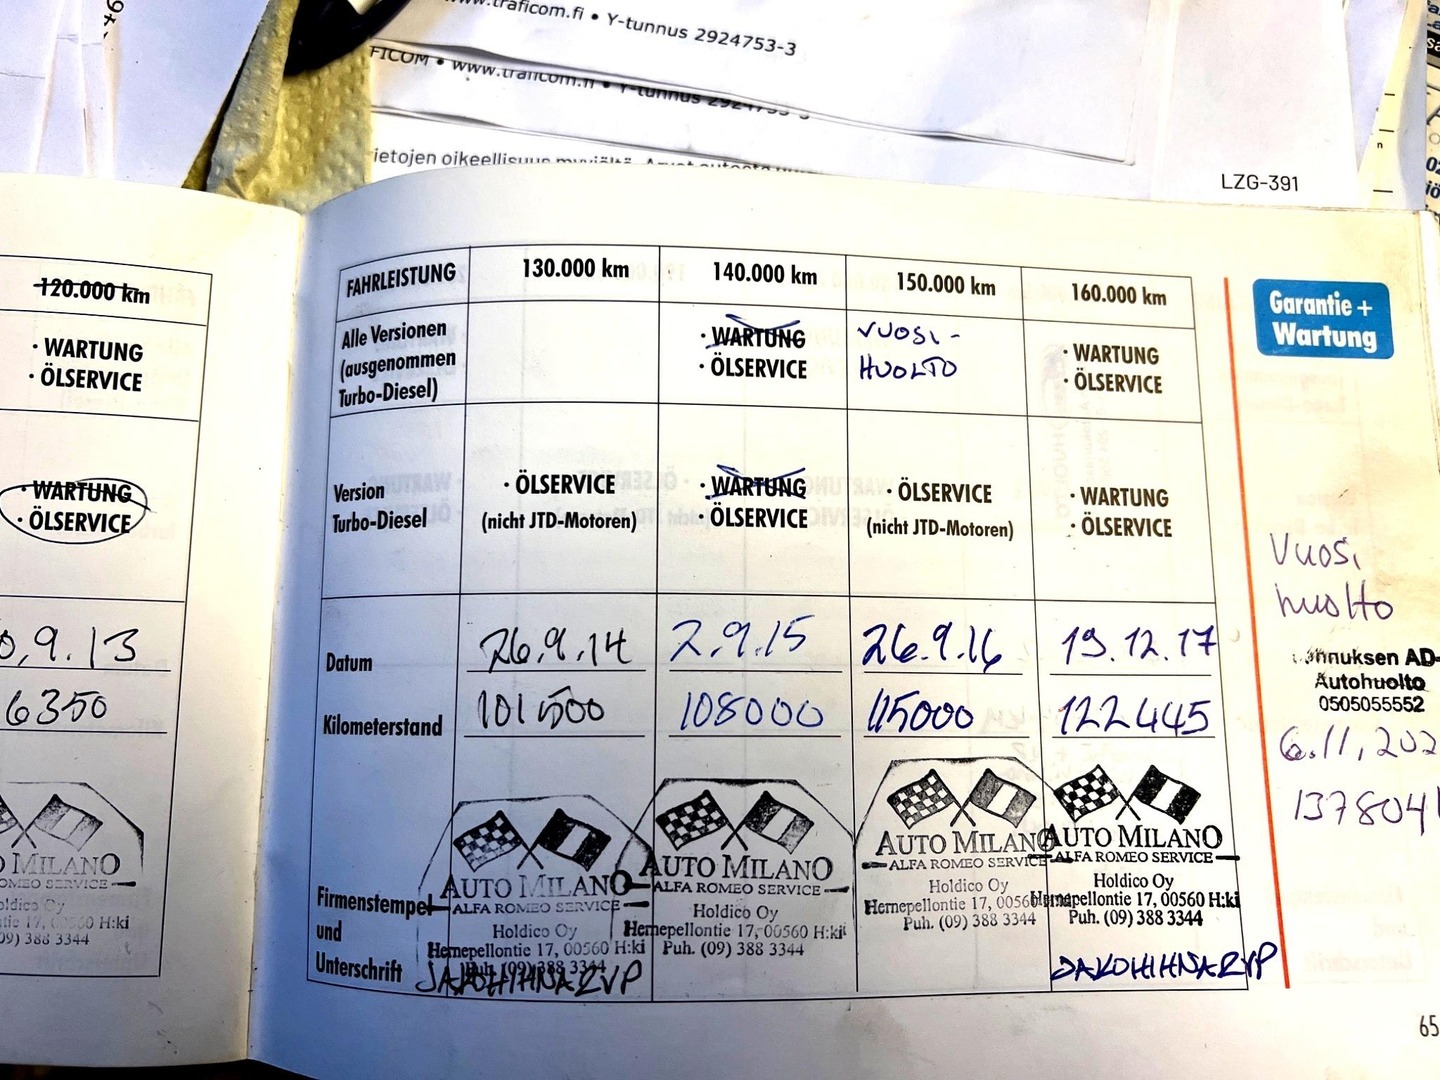 www.traficom.fi • Y-tunnus 2924753-3
FICOM • www.traficom.fi • Y-tunnus 2924753-3
ietojen oikeellisuus
LZG-391
120.000 km
· WARTUNG
· ÖLSERVICE
· WARTUNG
· ÖLSERVICE
.9.13
6350
MILANO
ROMEO SERVICE
17, 00560 H:ki
09) 388 3344
FAHRLEISTUNG 130.000 km 140.000 km 150.000 km 160.000 km
Alle Versionen
(ausgenommen
Turbo-Diesel)
· WARTUNG
· ÖLSERVICE
VUOSI-
HUOLTO
· WARTUNG
· ÖLSERVICE
Version
Turbo-Diesel
· ÖLSERVICE
(nicht JTD-Motoren)
· WARTUNG
· ÖLSERVICE
· ÖLSERVICE
(nicht JTD-Motoren)
· WARTUNG
· ÖLSERVICE
Datum 26.9.14 2.9.15 26.9.16 19.12.17
Kilometerstand 101500 108000 115000 122445
Firmenstempel
und
Unterschrift
AUTO MILANO
ALFA ROMEO SERVICE
Holdico Oy
Hernepellontie 17, 00560 H:ki
Puh. (09) 388 3344
JAKOHIHNA RVP
AUTO MILANO
ALFA ROMEO SERVICE
Holdico Oy
Hernepellontie 17, 00560 H:ki
Puh. (09) 388 3344
AUTO MILANO
ALFA ROMEO SERVICE
Holdico Oy
Hernepellontie 17, 00560
Puh. (09) 388 3344
AUTO MILANO
ALFA ROMEO SERVICE
Holdico Oy
Hernepellontie 17, 00560 H:ki
Puh. (09) 388 3344
JAKOHIHNA RVP
Garantie +
Wartung
Vuosi
huolto
nnuksen AD-
Autohuolto
0505055552
6.11.202
137804
65